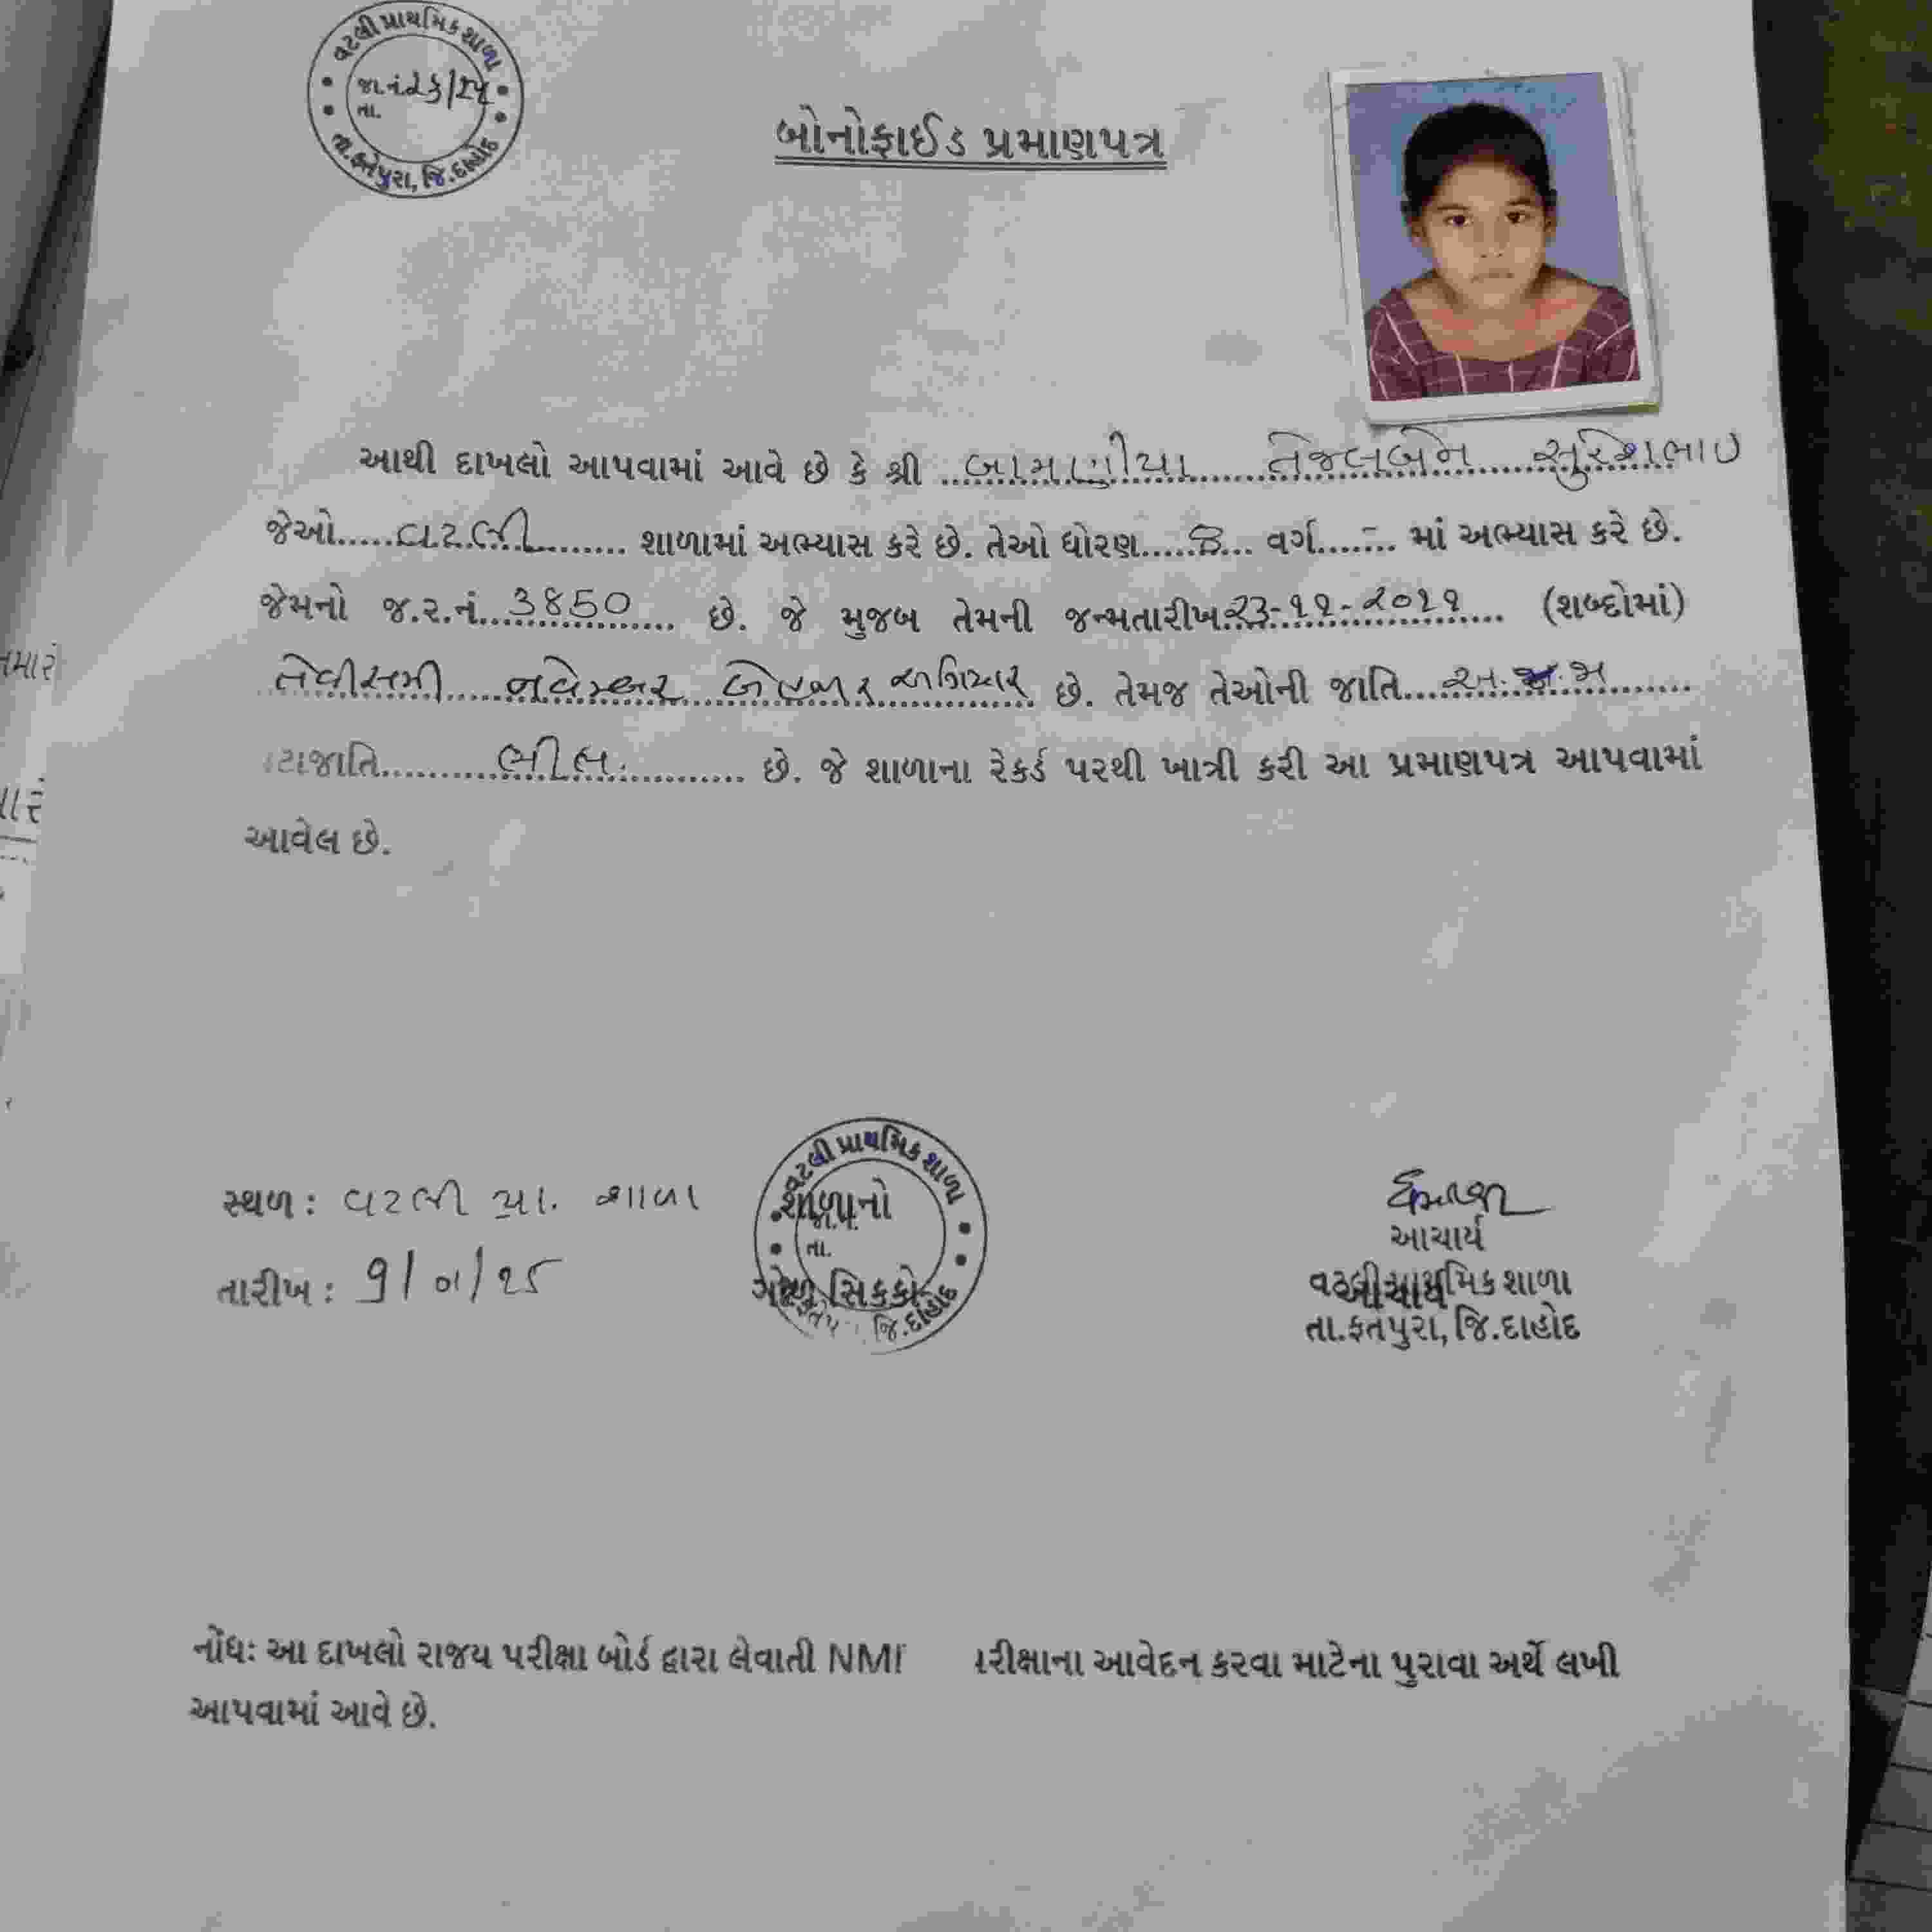 વટલી પ્રાથમિક શાળા
જા.નં.
તા.
તા.ફતેપુરા, જિ.દાહોદ
બોનોફાઈડ પ્રમાણપત્ર
આથી દાખલો આપવામાં આવે છે કે શ્રી બામણીયા તેજલબેન સુરેશભાઇ
જેઓ.....વટલી......... શાળામાં અભ્યાસ કરે છે. તેઓ ધોરણ.....8... વર્ગ....-... માં અભ્યાસ કરે છે.
જેમનો જ.ર.નં. 3850 છે. જે મુજબ તેમની જન્મતારીખ ૨૩-૧૧-૨૦૧૧ (શબ્દોમાં)
તેવીસમી નવેમ્બર બેહજાર અગિયાર છે. તેમજ તેઓની જાતિ અ.જ.જ
ટાજાતિ ભીલ છે. જે શાળાના રેકર્ડ પરથી ખાત્રી કરી આ પ્રમાણપત્ર આપવામાં
આવેલ છે.
સ્થળ : વટલી પ્રા. શાળા
તારીખ : 9/01/25
વટલી પ્રાથમિક શાળા
શાળાનો
તા.
ગોળ સિકકો
જિ.દાહોદ
આચાર્ય
વટલી પ્રાથમિક શાળા
આચાર્ય
તા.ફતપુરા, જિ.દાહોદ
નોંધઃ આ દાખલો રાજય પરીક્ષા બોર્ડ દ્વારા લેવાતી NM રીક્ષાના આવેદન કરવા માટેના પુરાવા અર્થે લખી
આપવામાં આવે છે.